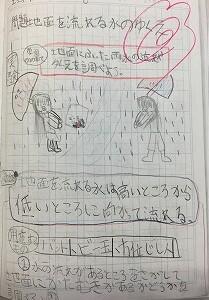 問題地面を流れる水のゆくえ
地面にふった雨水の流れ
方を調べよう。
地面を流れる水は高いところから
低いところに向かって流れる。
用意 バット ビー玉
①水の流れがあるところをさがして
地面にかたむきがあるかどうか